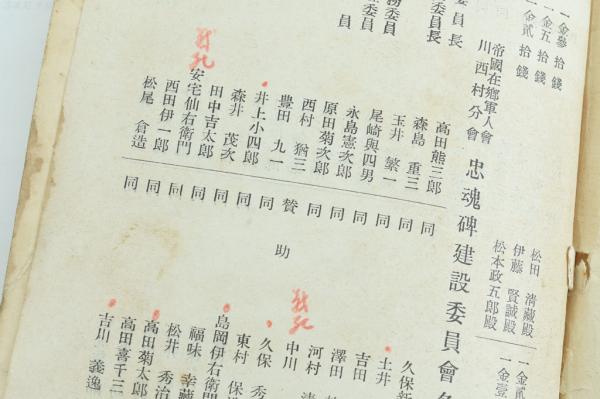 一金參拾錢
一金五拾錢
一金貳拾錢
松田清藏殿
伊藤賢誠殿
松本政五郎殿
一金貳
一金壹
帝國在鄉軍人會
川西村分會
忠魂碑建設委員會
委員長
務委員
委員
員
高田熊三郎
森島重三
玉井繁一
尾崎與四男
永島憲次郎
原田菊次郎
西村猶三
豊田九一
井上小四郎
森井茂次
田中吉太郎
安宅仙右衛門
戰死
西田伊一郎
松尾倉造
同
同
同
同
同
同
贊助
同
同
同
同
同
同
久保新
土井
吉田
澤田
河村
中川
戰死
久保秀
東村保
島岡伊右衛門
福味幸藏
松井秀治
高田菊太郎
高田喜千三
吉川義逸